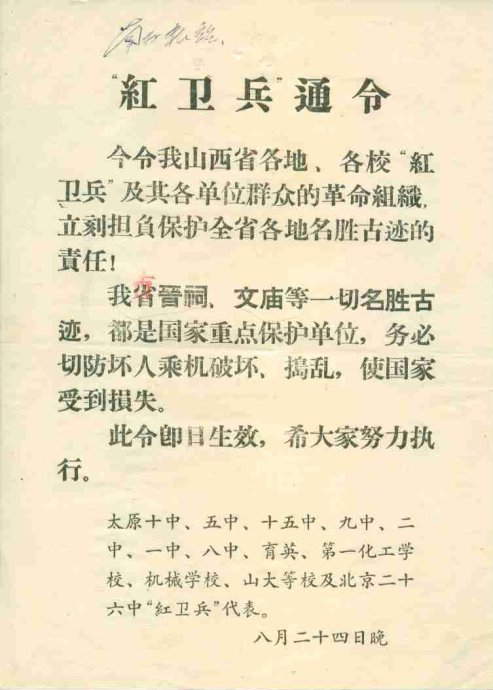 “紅卫兵”通令
今令我山西省各地、各校“紅
卫兵”及其各单位群众的革命組織，
立刻担負保护全省各地名胜古迹的
責任！
我省晉祠、文庙等一切名胜古
迹，都是国家重点保护单位，务必
切防坏人乘机破坏、搗乱，使国家
受到損失。
此令卽日生效，希大家努力执
行。
太原十中、五中、十五中、九中、二
中、一中、八中、育英、第一化工学
校、机械学校、山大等校及北京二十
六中“紅卫兵”代表。
八月二十四日晚